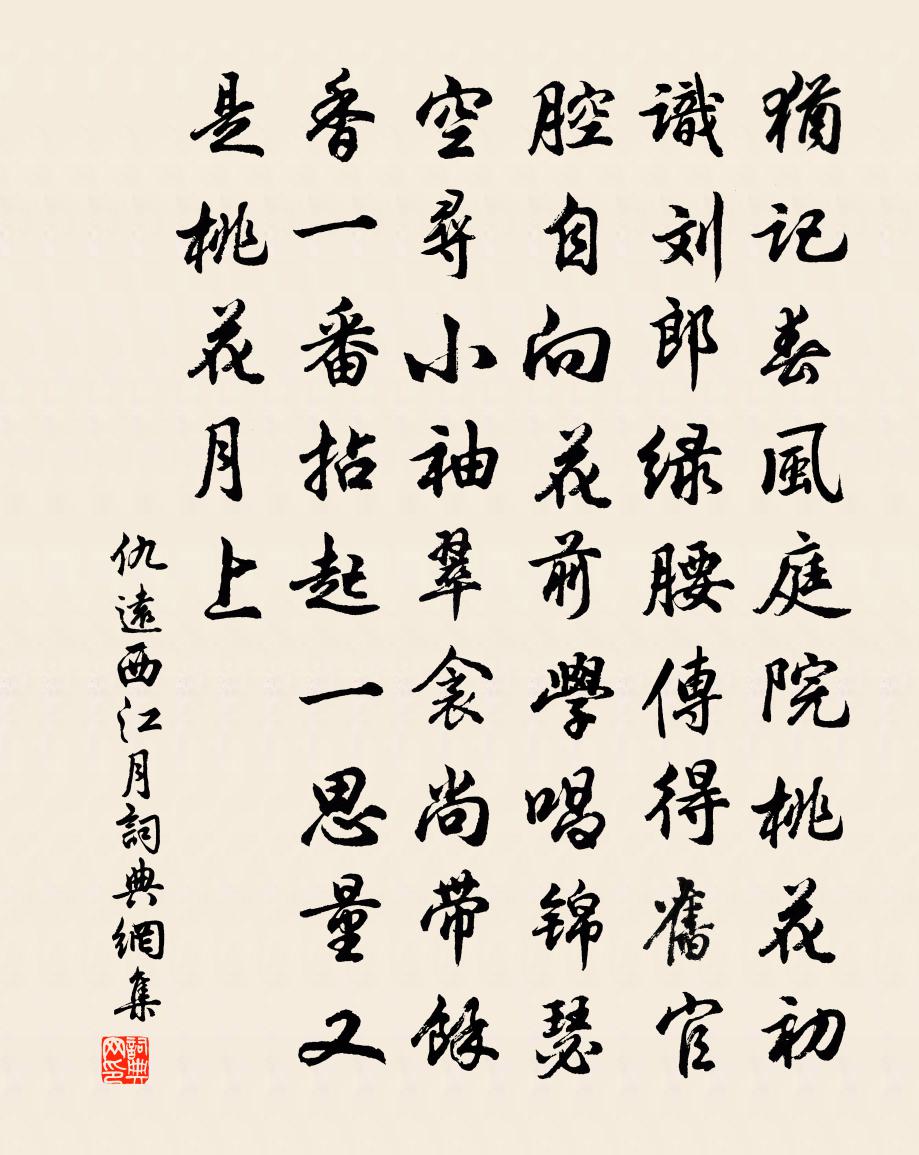 猶記春風庭院桃花初
識刘郎緑腰傳得舊官
腔自向花前學唱錦瑟
空尋小袖翠衾尚帶餘
香一番拈起一思量又
是桃花月上
仇遠西江月詞典網集
詞典网印